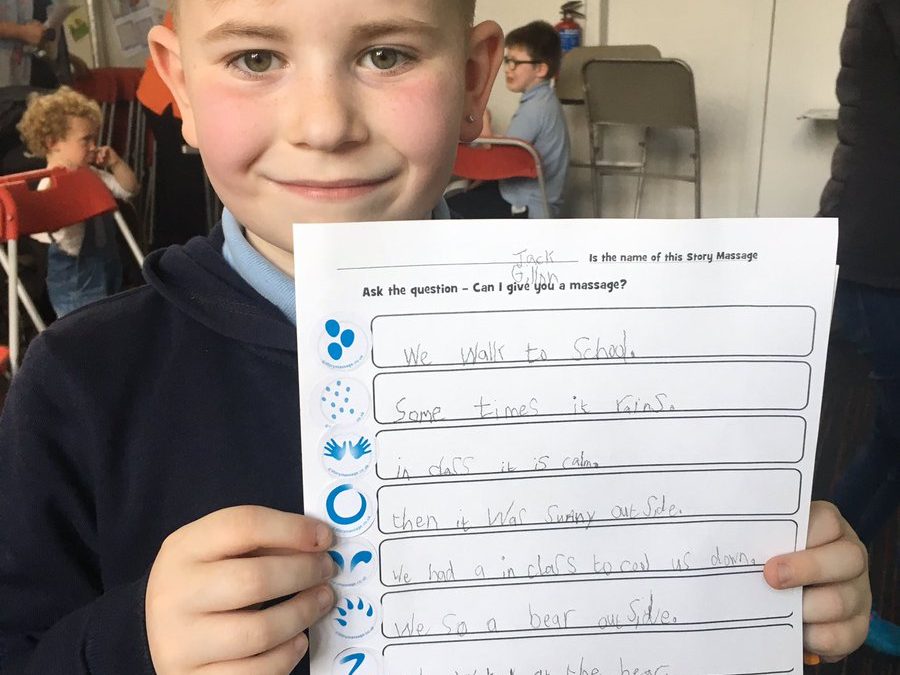 Jack Is the name of this Story Massage
Gillan
Ask the question – Can I give you a massage?
We walk to School.
Some times it rains.
in class it is calm.
then it was sunny outside.
We had a in class to cool us down.
We so a bear outside.
at the bear.